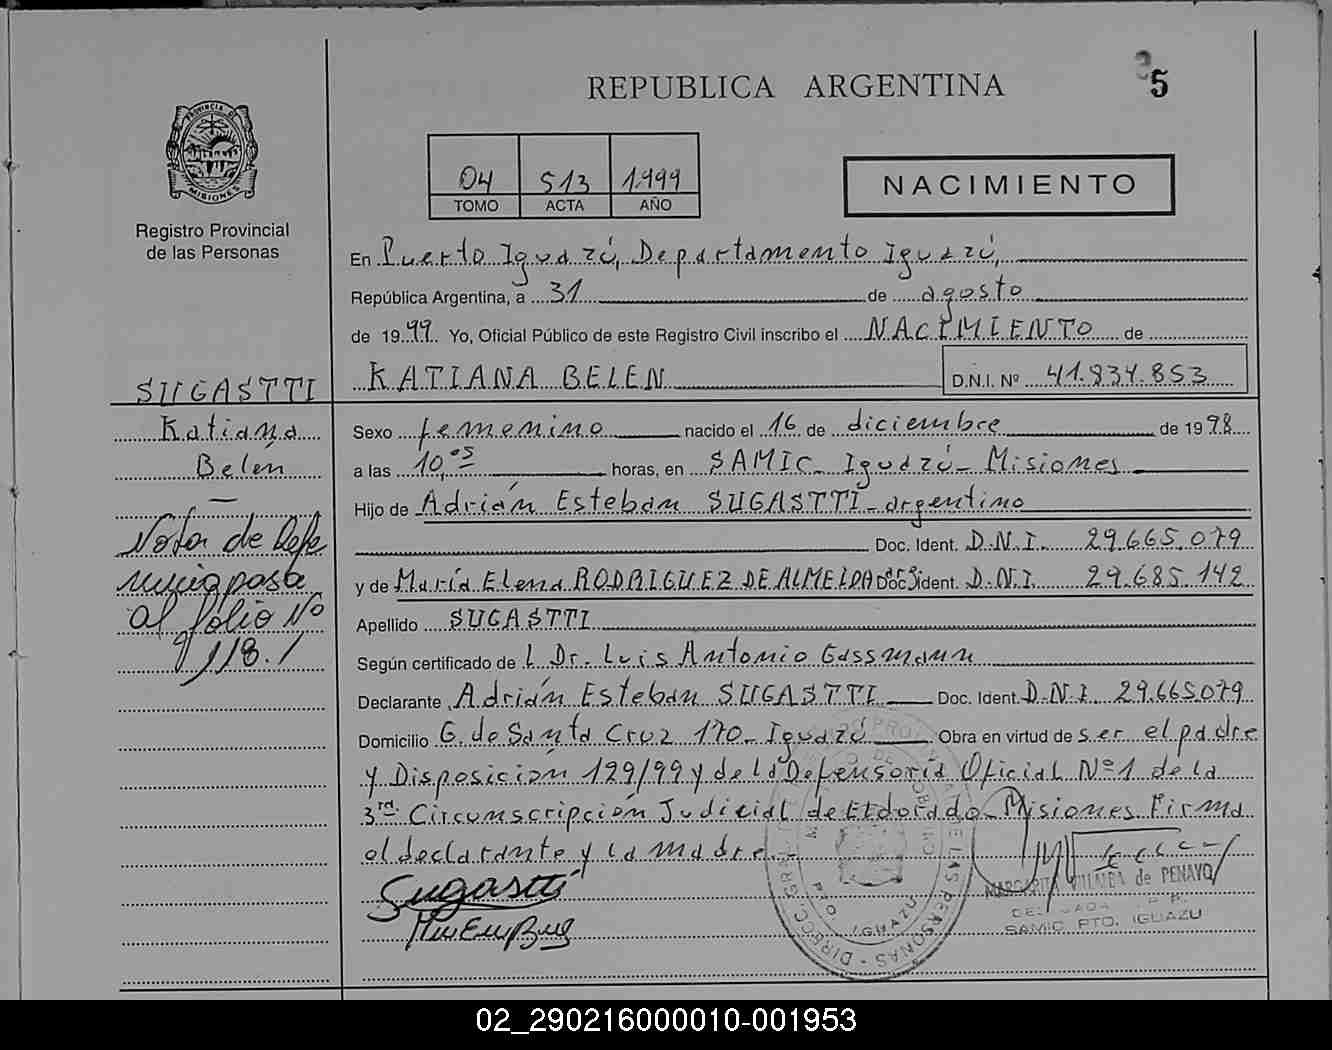 REPUBLICA ARGENTINA
5
PROVINCIA DE MISIONES
Registro Provincial
de las Personas
04 513 1.999
TOMO ACTA AÑO
NACIMIENTO
En Puerto Iguazú, Departamento Iguazú,
República Argentina, a 31 de agosto
de 1999 Yo, Oficial Público de este Registro Civil inscribo el NACIMIENTO de
KATIANA BELEN D.N.I. Nº 41.834.853
SUGASTTI
Katiana
Belén
Nota de Refe
rencia pasa
al folio Nº
118.
Sexo femenino nacido el 16 de diciembre de 1998
a las 10,05 horas, en SAMIC - Iguazú - Misiones
Hijo de Adrián Esteban SUGASTTI - argentino
Doc. Ident. D.N.I. 29.665.079
y de María Elena RODRIGUEZ DE ALMEIDA Doc. Ident. D.N.I. 29.685.142
Apellido SUGASTTI
Según certificado de L Dr. Luis Antonio Gassmann
Declarante Adrián Esteban SUGASTTI Doc. Ident. D.N.I. 29.665.079
Domicilio G. de Santa Cruz 170 - Iguazú Obra en virtud de ser el padre
y Disposición 129/99 y de la Defensoría Oficial Nº 1 de la
3ra Circunscripción Judicial de Eldorado - Misiones. Firma
el declarante y la madre.
Sugastti
MARGARITA VILLALBA de PENAYO
DELEGADA
SAMIC PTO. IGUAZU
PTO. IGUAZU
DE LAS PERSONAS - DIRECC. GRAL.
02_290216000010-001953